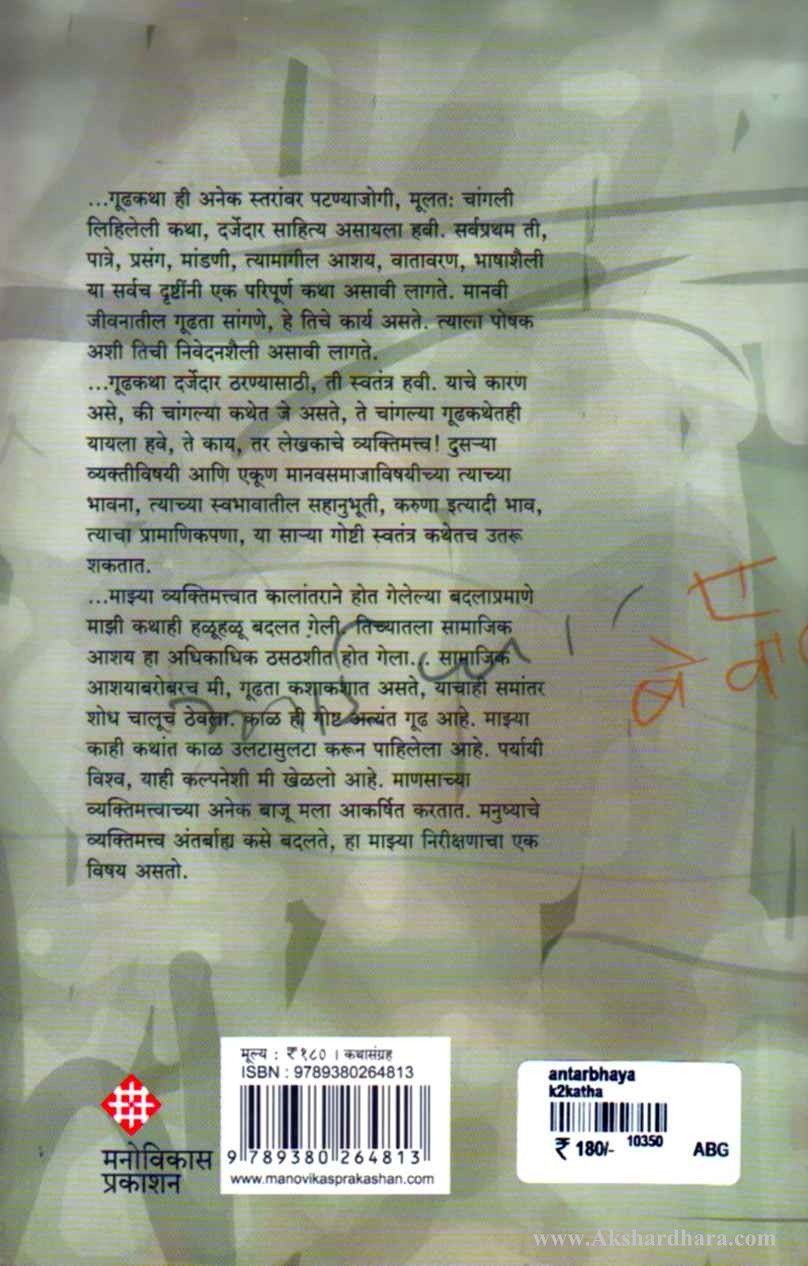 ...गूढकथा ही अनेक स्तरांवर पटण्याजोगी, मूलत: चांगली
लिहिलेली कथा, दर्जेदार साहित्य असायला हवी. सर्वप्रथम ती,
पात्रे, प्रसंग, मांडणी, त्यामागील आशय, वातावरण, भाषाशैली
या सर्वच दृष्टींनी एक परिपूर्ण कथा असावी लागते. मानवी
जीवनातील गूढता सांगणे, हे तिचे कार्य असते. त्याला पोषक
अशी तिची निवेदनशैली असावी लागते.
...गूढकथा दर्जेदार ठरण्यासाठी, ती स्वतंत्र हवी. याचे कारण
असे, की चांगल्या कथेत जे असते, ते चांगल्या गूढकथेतही
यायला हवे, ते काय, तर लेखकाचे व्यक्तिमत्त्व! दुसऱ्या
व्यक्तीविषयी आणि एकूण मानवसमाजाविषयीच्या त्याच्या
भावना, त्याच्या स्वभावातील सहानुभूती, करुणा इत्यादी भाव,
त्याचा प्रामाणिकपणा, या साऱ्या गोष्टी स्वतंत्र कथेतच उतरू
शकतात.
...माझ्या व्यक्तिमत्त्वात कालांतराने होत गेलेल्या बदलाप्रमाणे
माझी कथाही हळूहळू बदलत गेली. तिच्यातला सामाजिक
आशय हा अधिकाधिक ठसठशीत होत गेला... सामाजिक
आशयाबरोबरच मी, गूढता कशाकशात असते, याचाही समांतर
शोध चालूच ठेवला. काळ ही गोष्ट अत्यंत गूढ आहे. माझ्या
काही कथांत काळ उलटासुलटा करून पाहिलेला आहे. पर्यायी
विश्व, याही कल्पनेशी मी खेळलो आहे. माणसाच्या
व्यक्तिमत्त्वाच्या अनेक बाजू मला आकर्षित करतात. मनुष्याचे
व्यक्तिमत्त्व अंतर्बाह्य कसे बदलते, हा माझ्या निरीक्षणाचा एक
विषय असतो.
ए
मूल्य : ₹ १८० । कथासंग्रह
ISBN : 9789380264813
9 789380 264813
www.manovikasprakashan.com
मनोविकास
प्रकाशन
antarbhaya
k2katha
₹ 180/- 10350 ABG
www.Akshardhara.com